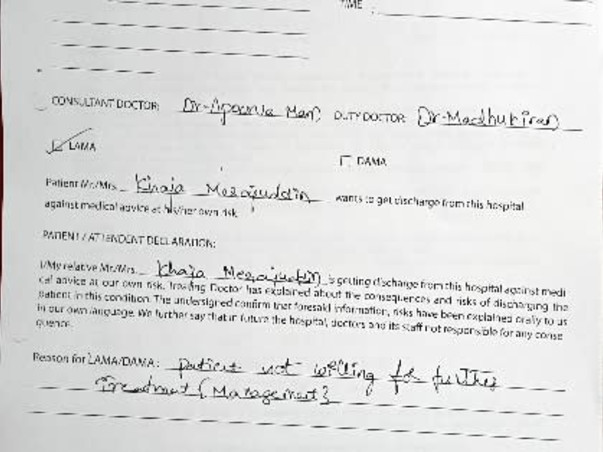 TIME :
CONSULTANT DOCTOR: Dr-Apoorva Men DUTY DOCTOR: Dr-Madhu kiran
LAMA
DAMA
Patient Mr./Mrs. Khaja Merajuddin wants to get discharge from this hospital
against medical advice at his/her own risk.
PATIENT / ATTENDENT DECLARATION:
I/My relative Mr./Mrs. Khaja Merajuddin is getting discharge from this hospital against medi
cal advice at our own risk. Treating Doctor has explained about the consequences and risks of discharging the
patient in this condition. The undersigned confirm that foresaid information, risks have been explained orally to us
in our own language. We further say that in future the hospital, doctors and its staff not responsible for any conse
quence.
Reason for LAMA/DAMA : patient not willing for further
Treatment {Management}